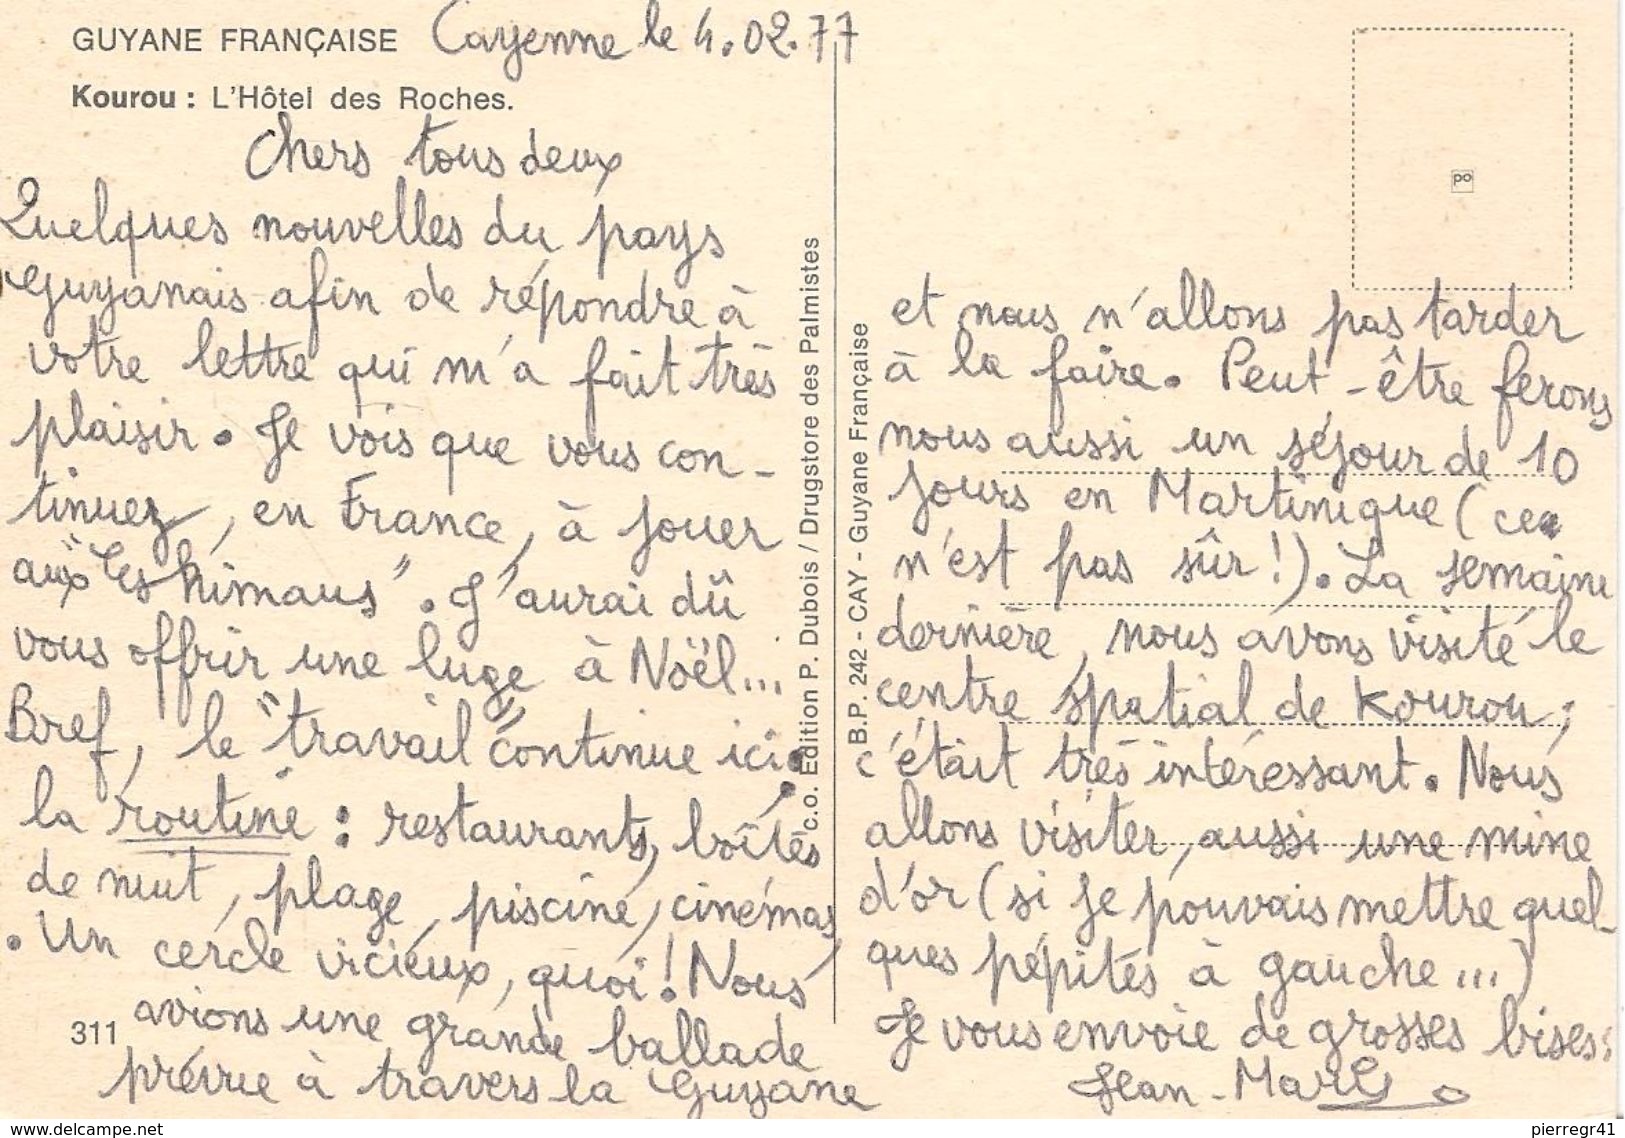 GUYANE FRANÇAISE
Cayenne le 4.02.77
Kourou : L'Hôtel des Roches.
Chers tous deux
Quelques nouvelles du pays
Guyanais afin de répondre à
votre lettre qui m'a fait très
plaisir. Je vois que vous con-
tinuez, en France, à jouer
aux "Eskimaus". J'aurai dû
vous offrir une luge à Noël...
Bref, le "travail" continue ici :
la routine : restaurants, boîtes
de nuit, plage, piscine, cinémas
. Un cercle vicieux, quoi ! Nous
avions une grande ballade
prévue à travers la Guyane
311
c.o. Edition P. Dubois / Drugstore des Palmistes
B.P. 242 - CAY - Guyane Française
po
et nous n'allons pas tarder
à la faire. Peut-être ferons
nous aussi un séjour de 10
jours en Martinique (ce
n'est pas sûr !). La semaine
dernière, nous avons visité le
centre spatial de Kourou ;
c'était très intéressant. Nous
allons visiter, aussi une mine
d'or (si je pouvais mettre quel-
ques pépites à gauche...)
Je vous envoie de grosses bises.
Jean-Marc
www.delcampe.net
pierregr41